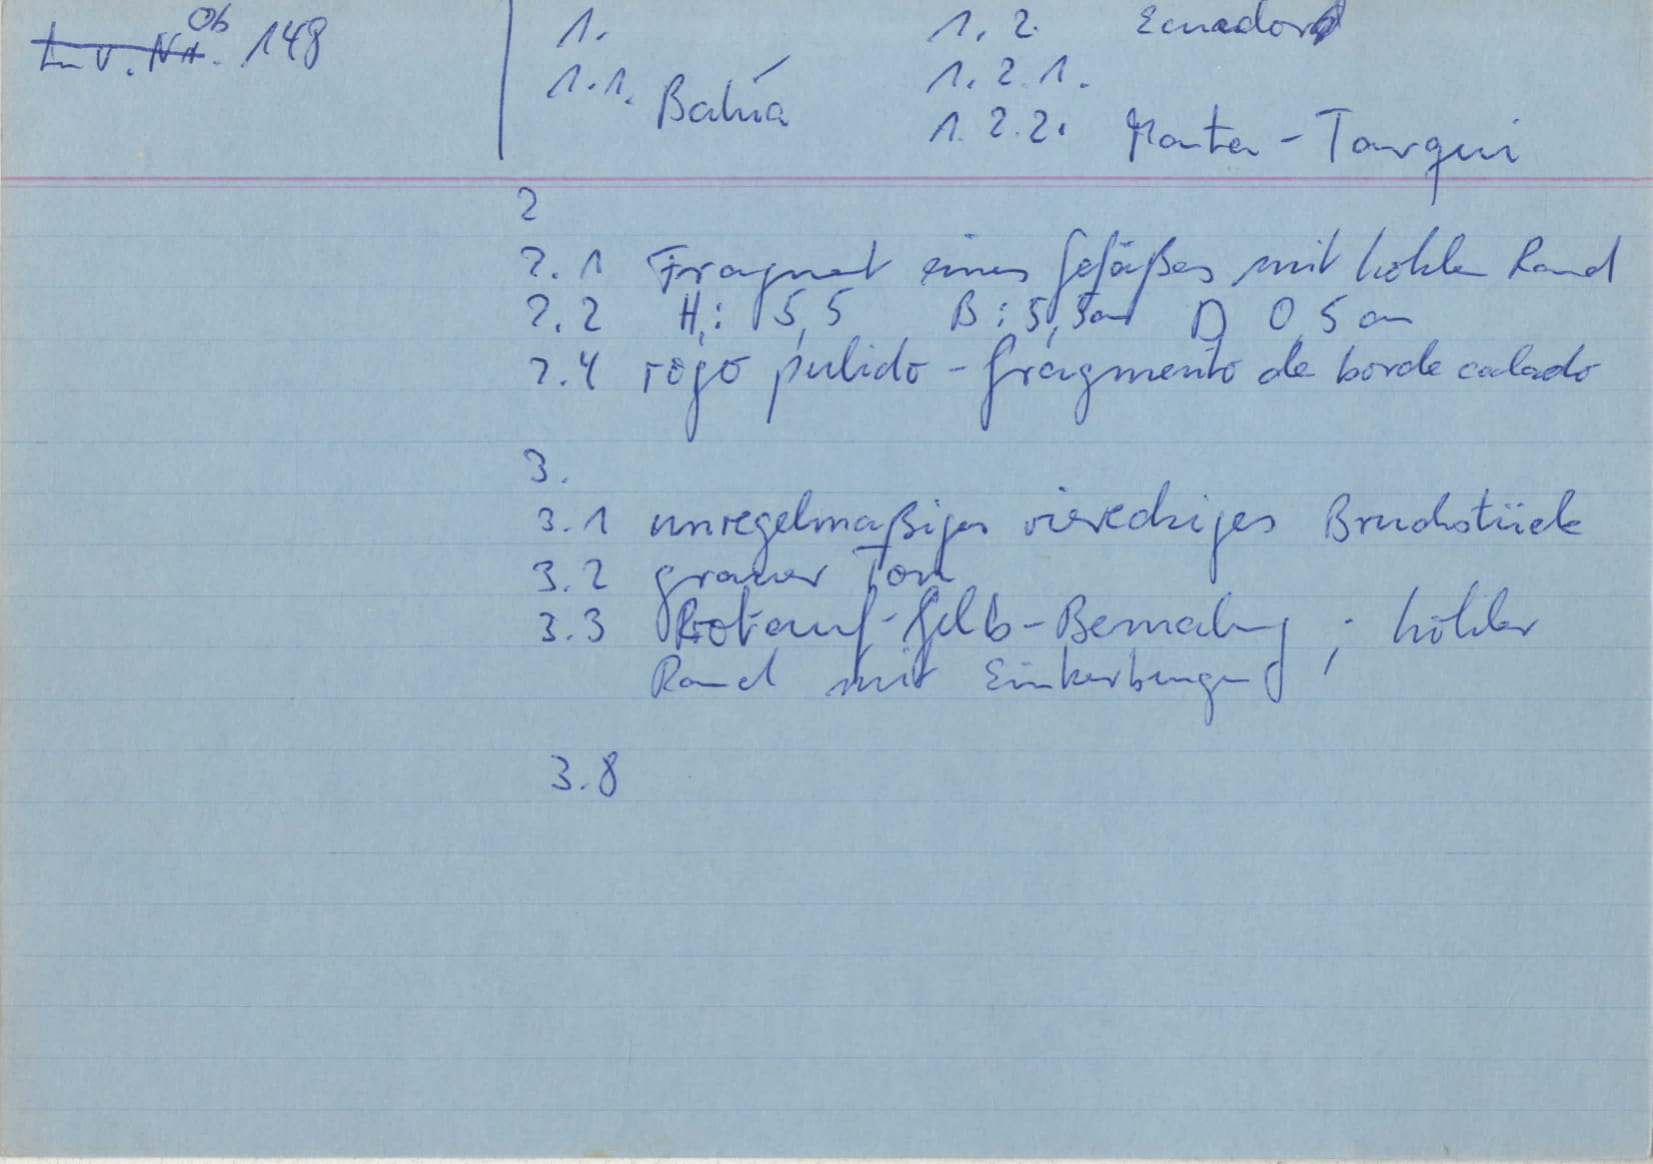 Ob
Inv. Nr. 148
1.
1.1. Bahía
1.2. Ecuador
1.2.1.
1.2.2. Manta - Tarqui
2
2.1 Fragment eines Gefäßes mit hohlem Rand
2.2 H: 5,5 B: 5,3cm D 0,5 cm
2.4 rojo pulido - fragmento de borde calado
3.
3.1 unregelmäßiges viereckiges Bruchstück
3.2 grauer Ton
3.3 Rot-auf-Gelb-Bemalung; hohler
Rand mit Einkerbungen
3.8